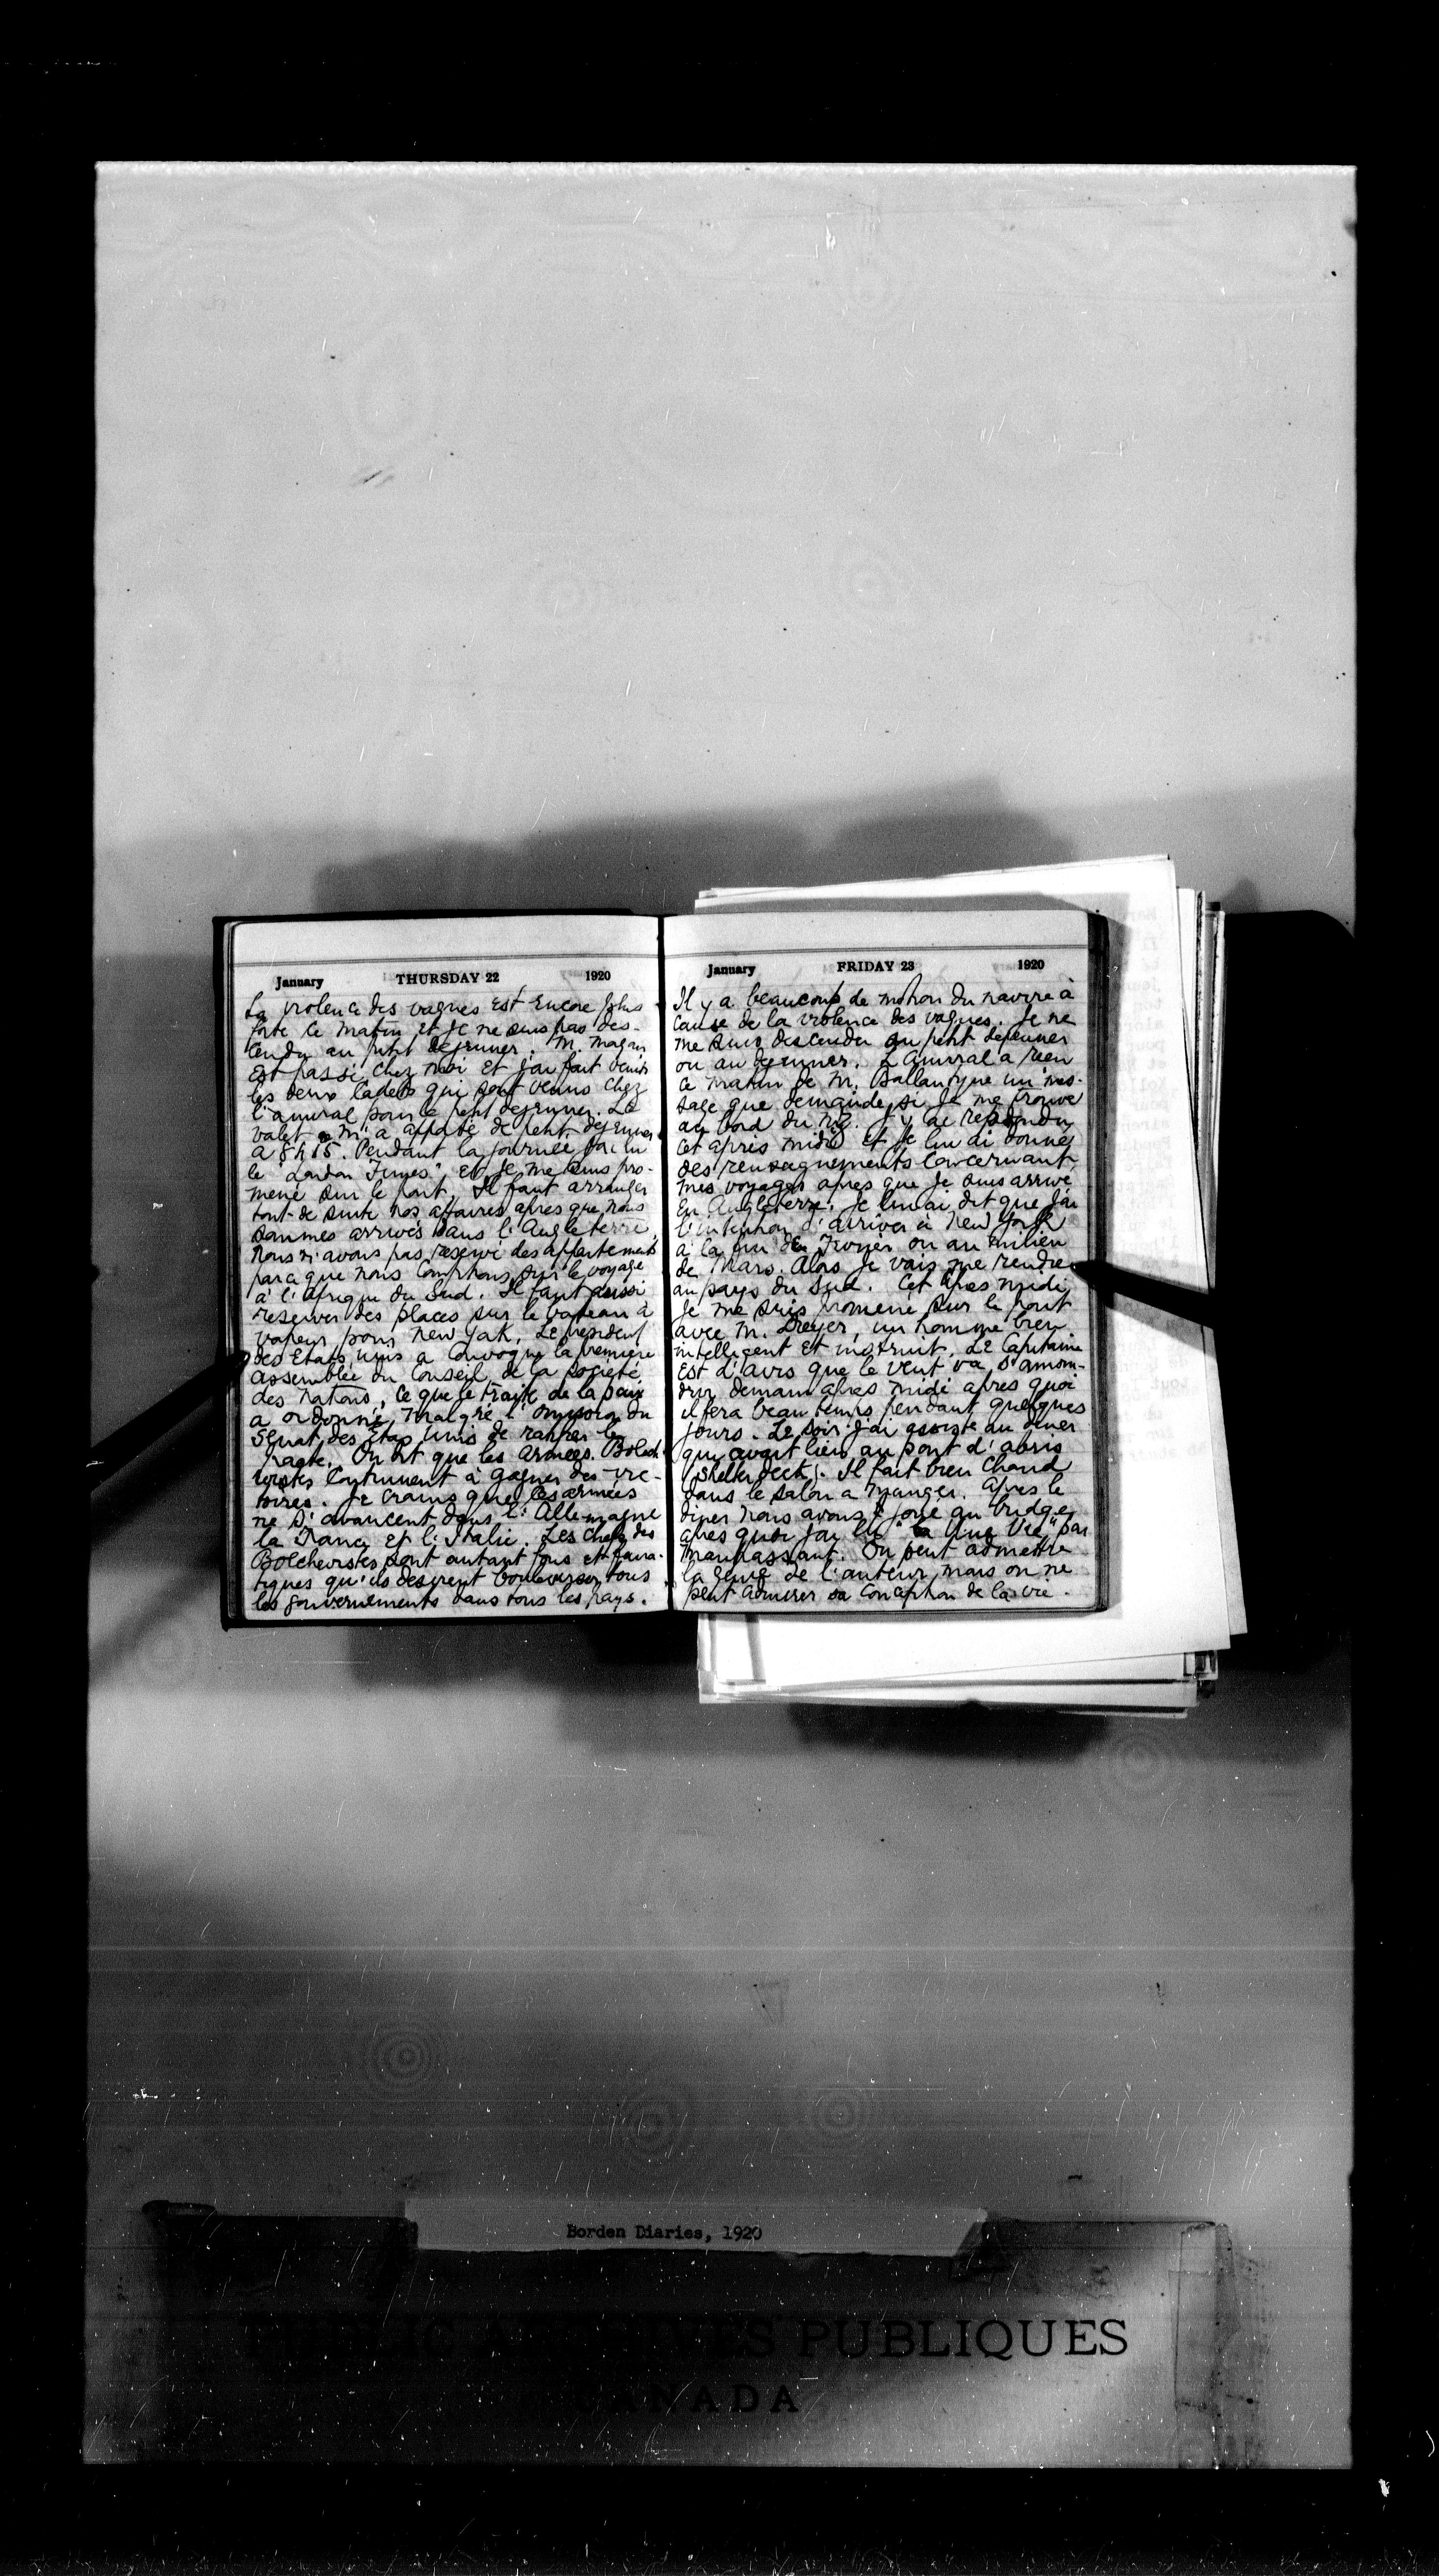 January THURSDAY 22 1920
La violence des vagues est encore plus
forte ce matin et je ne suis pas des-
cendu au petit dejeuner. M. Magan
est passé chez moi et j'ai fait venir
les deux cadets qui sont venus chez
l'amiral pour le petit dejeuner. Le
valet m'a apporté de petit dejeuner
a 8 h 15. Pendant la journée j'ai lu
le "London Times" et je me suis pro-
mené sur le pont. Il faut arranger
tout-de suite nos affaires apres que nous
sommes arrivés dans l'Angleterre.
Nous n'avons pas reservé des appartements
parce que nous comptions sur le voyage
à l'Afrique du Sud. Il faut aussi
reserver des places sur le bateau à
vapeur pour New York. Le president
des Etats Unis a convoqué la premiere
assemblée du Conseil de la Société
des Nations, ce que le traité de la paix
a ordonné, malgré l'omission du
Senat des Etats Unis de ratifier le
pacte. On dit que les armées Bolch-
evistes continuent à gagner des vic-
toires. Je crains que les armées
ne s'avancent dans l'Allemagne
la France et l'Italie. Les chefs des
Bolchevistes sont autant fous et fana-
tiques qu'ils desirent bouleverser tous
les gouvernements dans tous les pays.
January FRIDAY 23 1920
Il y a beaucoup de motion du navire à
cause de la violence des vagues. Je ne
me suis descendu au petit dejeuner
ou au dejeuner. L'amiral a reçu
ce matin de M. Ballantyne un mes-
sage que demande si je me trouve
au bord du N.Z. J'y ai repondu
cet apres midi et je lui ai donné
des renseignements concernant
mes voyages apres que je suis arrivé
en Angleterre. Je lui ai dit que j'ai
l'intention d'arriver à New York
à la fin de Fevrier ou au milieu
de Mars. Alors je vais me rendre
au pays du Sud. Cet apres midi
je me suis promené sur le pont
avec M. Dreyer, un homme bien
intelligent et instruit. Le Capitaine
est d'avis que le vent va s'amoin-
drir demain apres midi apres quoi
il fera beau temps pendant quelques
jours. Le soir j'ai assisté au diner
qui avait lieu au pont d'abris
(shelter deck). Il fait bien chaud
dans le salon a manger. Apres le
diner nous avons joué au bridge
apres quoi j'ai lu "Une Vie" par
Maupassant. On peut admettre
la genie de l'auteur mais on ne
peut admirer sa conception de la vie.
Borden Diaries, 1920
PUBLIC ARCHIVES PUBLIQUES
CANADA